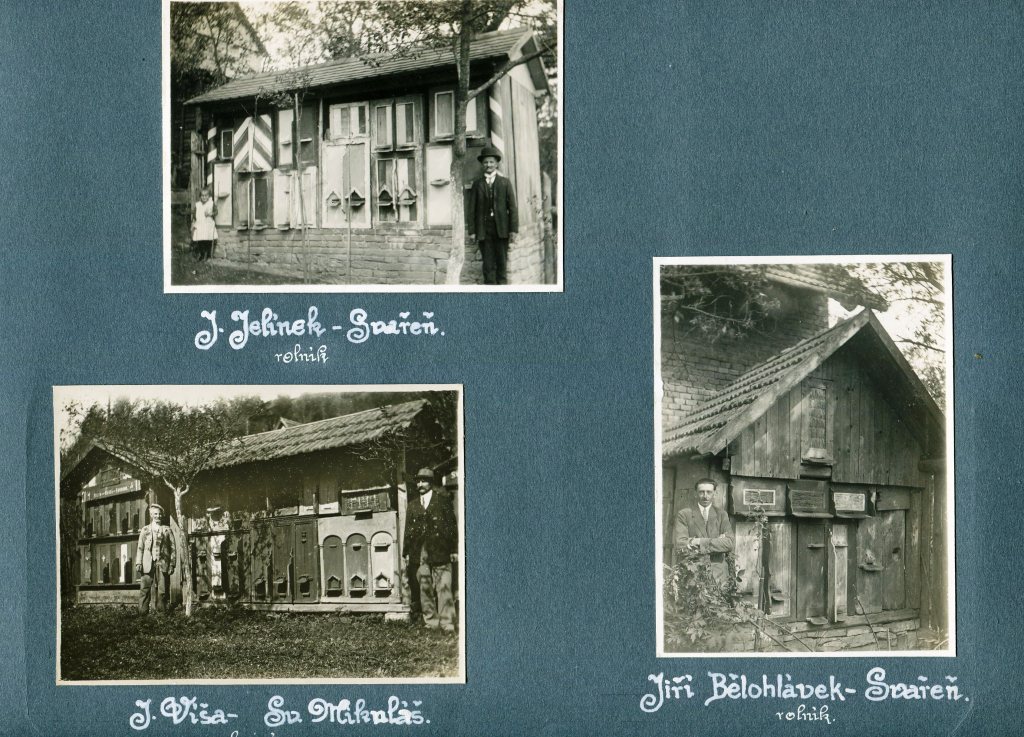 J. Jelínek - Svařeň.
rolník
J. Víša - Sv. Mikuláš.
Jiří Bělohlávek - Svařeň.
rolník.